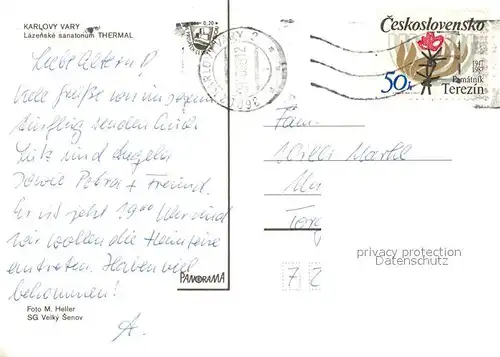 KARLOVY VARY
Lázeňské sanatorium THERMAL
Liebe Eltern!
Viele Grüße von
Ausflug senden Euch
Lutz und Angela
sowie Petra + Freund.
Es ist jetzt 19⁰⁰ Uhr und
wir wollen die Heimreise
antreten. Haben viel
bekommen!
A.
Foto M. Heller
SG Velký Šenov
PANORAMA
0,20
360 01 KARLOVY VARY 2
Československo
50h
1947
1987
Památník
Terezín
Fam.
Willi
privacy protection
Datenschutz
7 2